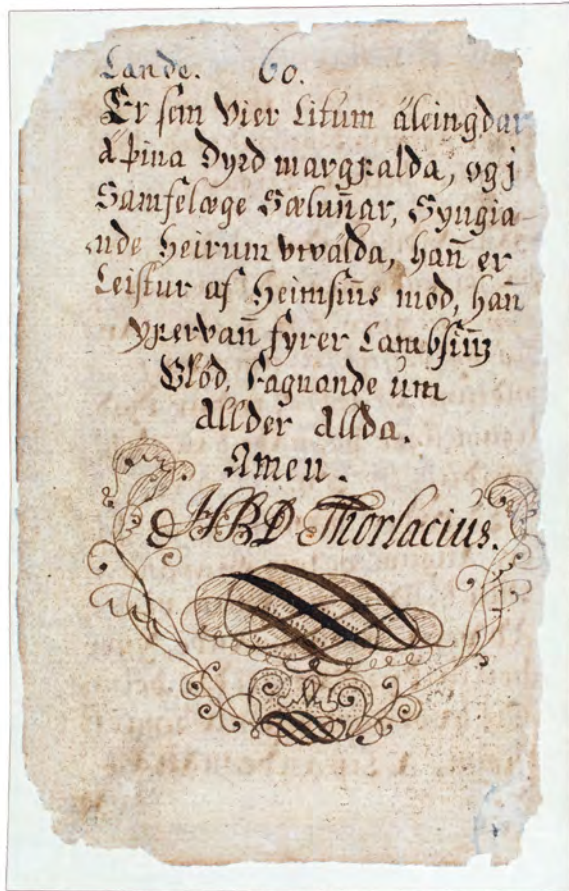 Lande. 60.
Er sem Vier Litum äleingdar
á þina Dyrd margfalda, og j
Samfelæge Sælun̄ar, Syngia-
nde Heirum vtvalda, han̄ er
Leistur af Heimsin̄s mód, han̄
yfervan̄ fyrer Lambsin̄s
Blód, Fagnande um
Allder Allda.
Amen.
HBD Thorlacius.